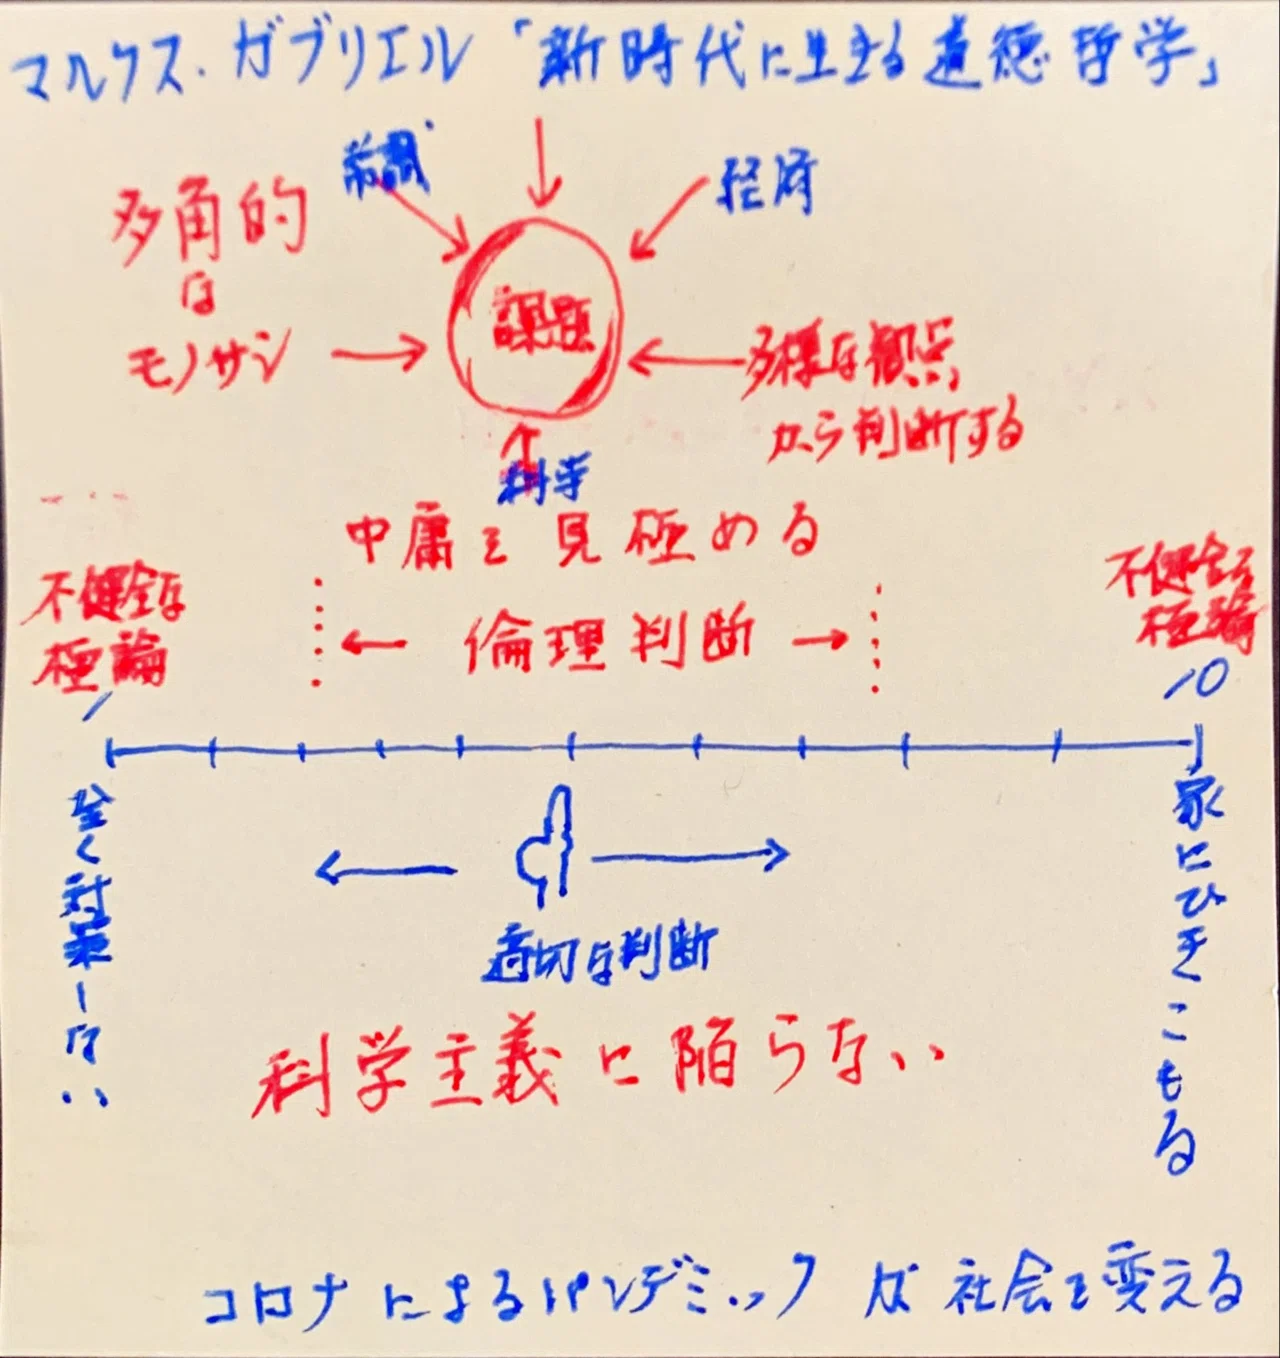 マルクス・ガブリエル「新時代に生きる道徳哲学」
経済
多角的
な
モノサシ
課題
多様な観点
から判断する
科学
中庸を見極める
不健全な
極論
不健全な
極論
倫理判断
1
10
全く対策しない
家にひきこもる
適切な判断
科学主義に陥らない
コロナによるパンデミックが社会を変える